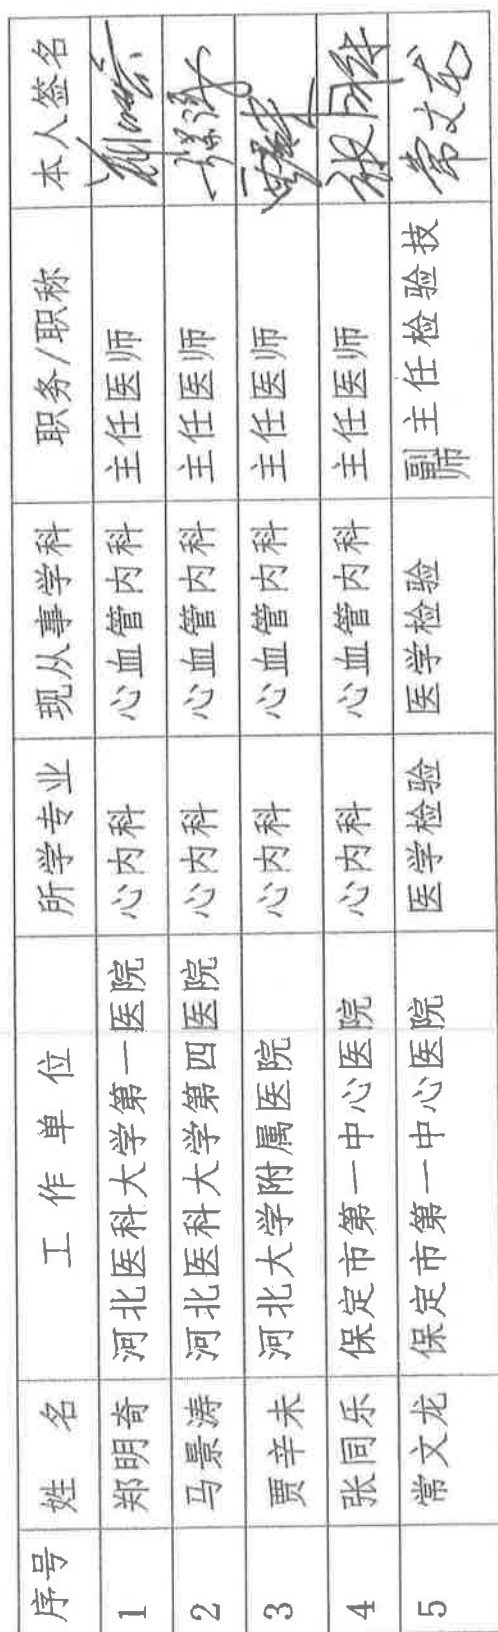 序号 姓 名 工 作 单 位 所学专业 现从事学科 职务/职称 本人签名
1 郑明奇 河北医科大学第一医院 心内科 心血管内科 主任医师
2 马景涛 河北医科大学第四医院 心内科 心血管内科 主任医师
3 贾辛未 河北大学附属医院 心内科 心血管内科 主任医师
4 张同乐 保定市第一中心医院 心内科 心血管内科 主任医师
5 常文龙 保定市第一中心医院 医学检验 医学检验 副主任检验技师 常文龙